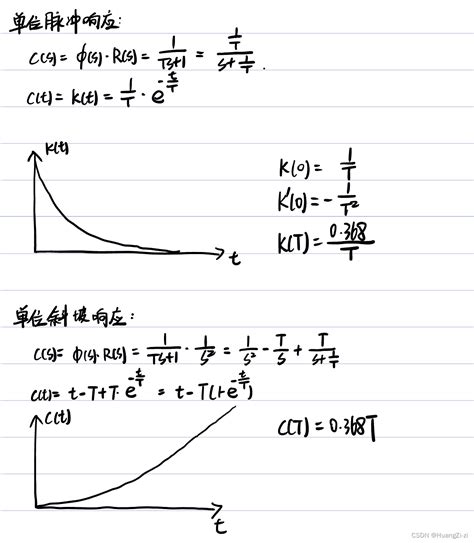 单位脉冲响应:
C(s)= ϕ(s)·R(s)= 1/(Ts+1) = (1/T)/(s+1/T).
C(t)= K(t)= 1/T · e^(-t/T)
K(t)
K(0)= 1/T
K'(0)= -1/T²
K(T)= 0.368/T
t
单位斜坡响应:
C(s)= ϕ(s)·R(s)= 1/(Ts+1) · 1/s² = 1/s² - T/s + T/(s+1/T)
C(t)= t-T+T·e^(-t/T) = t-T(1-e^(-t/T))
C(t)
C(T)=0.368T
t
CSDN @HuangZi-zi